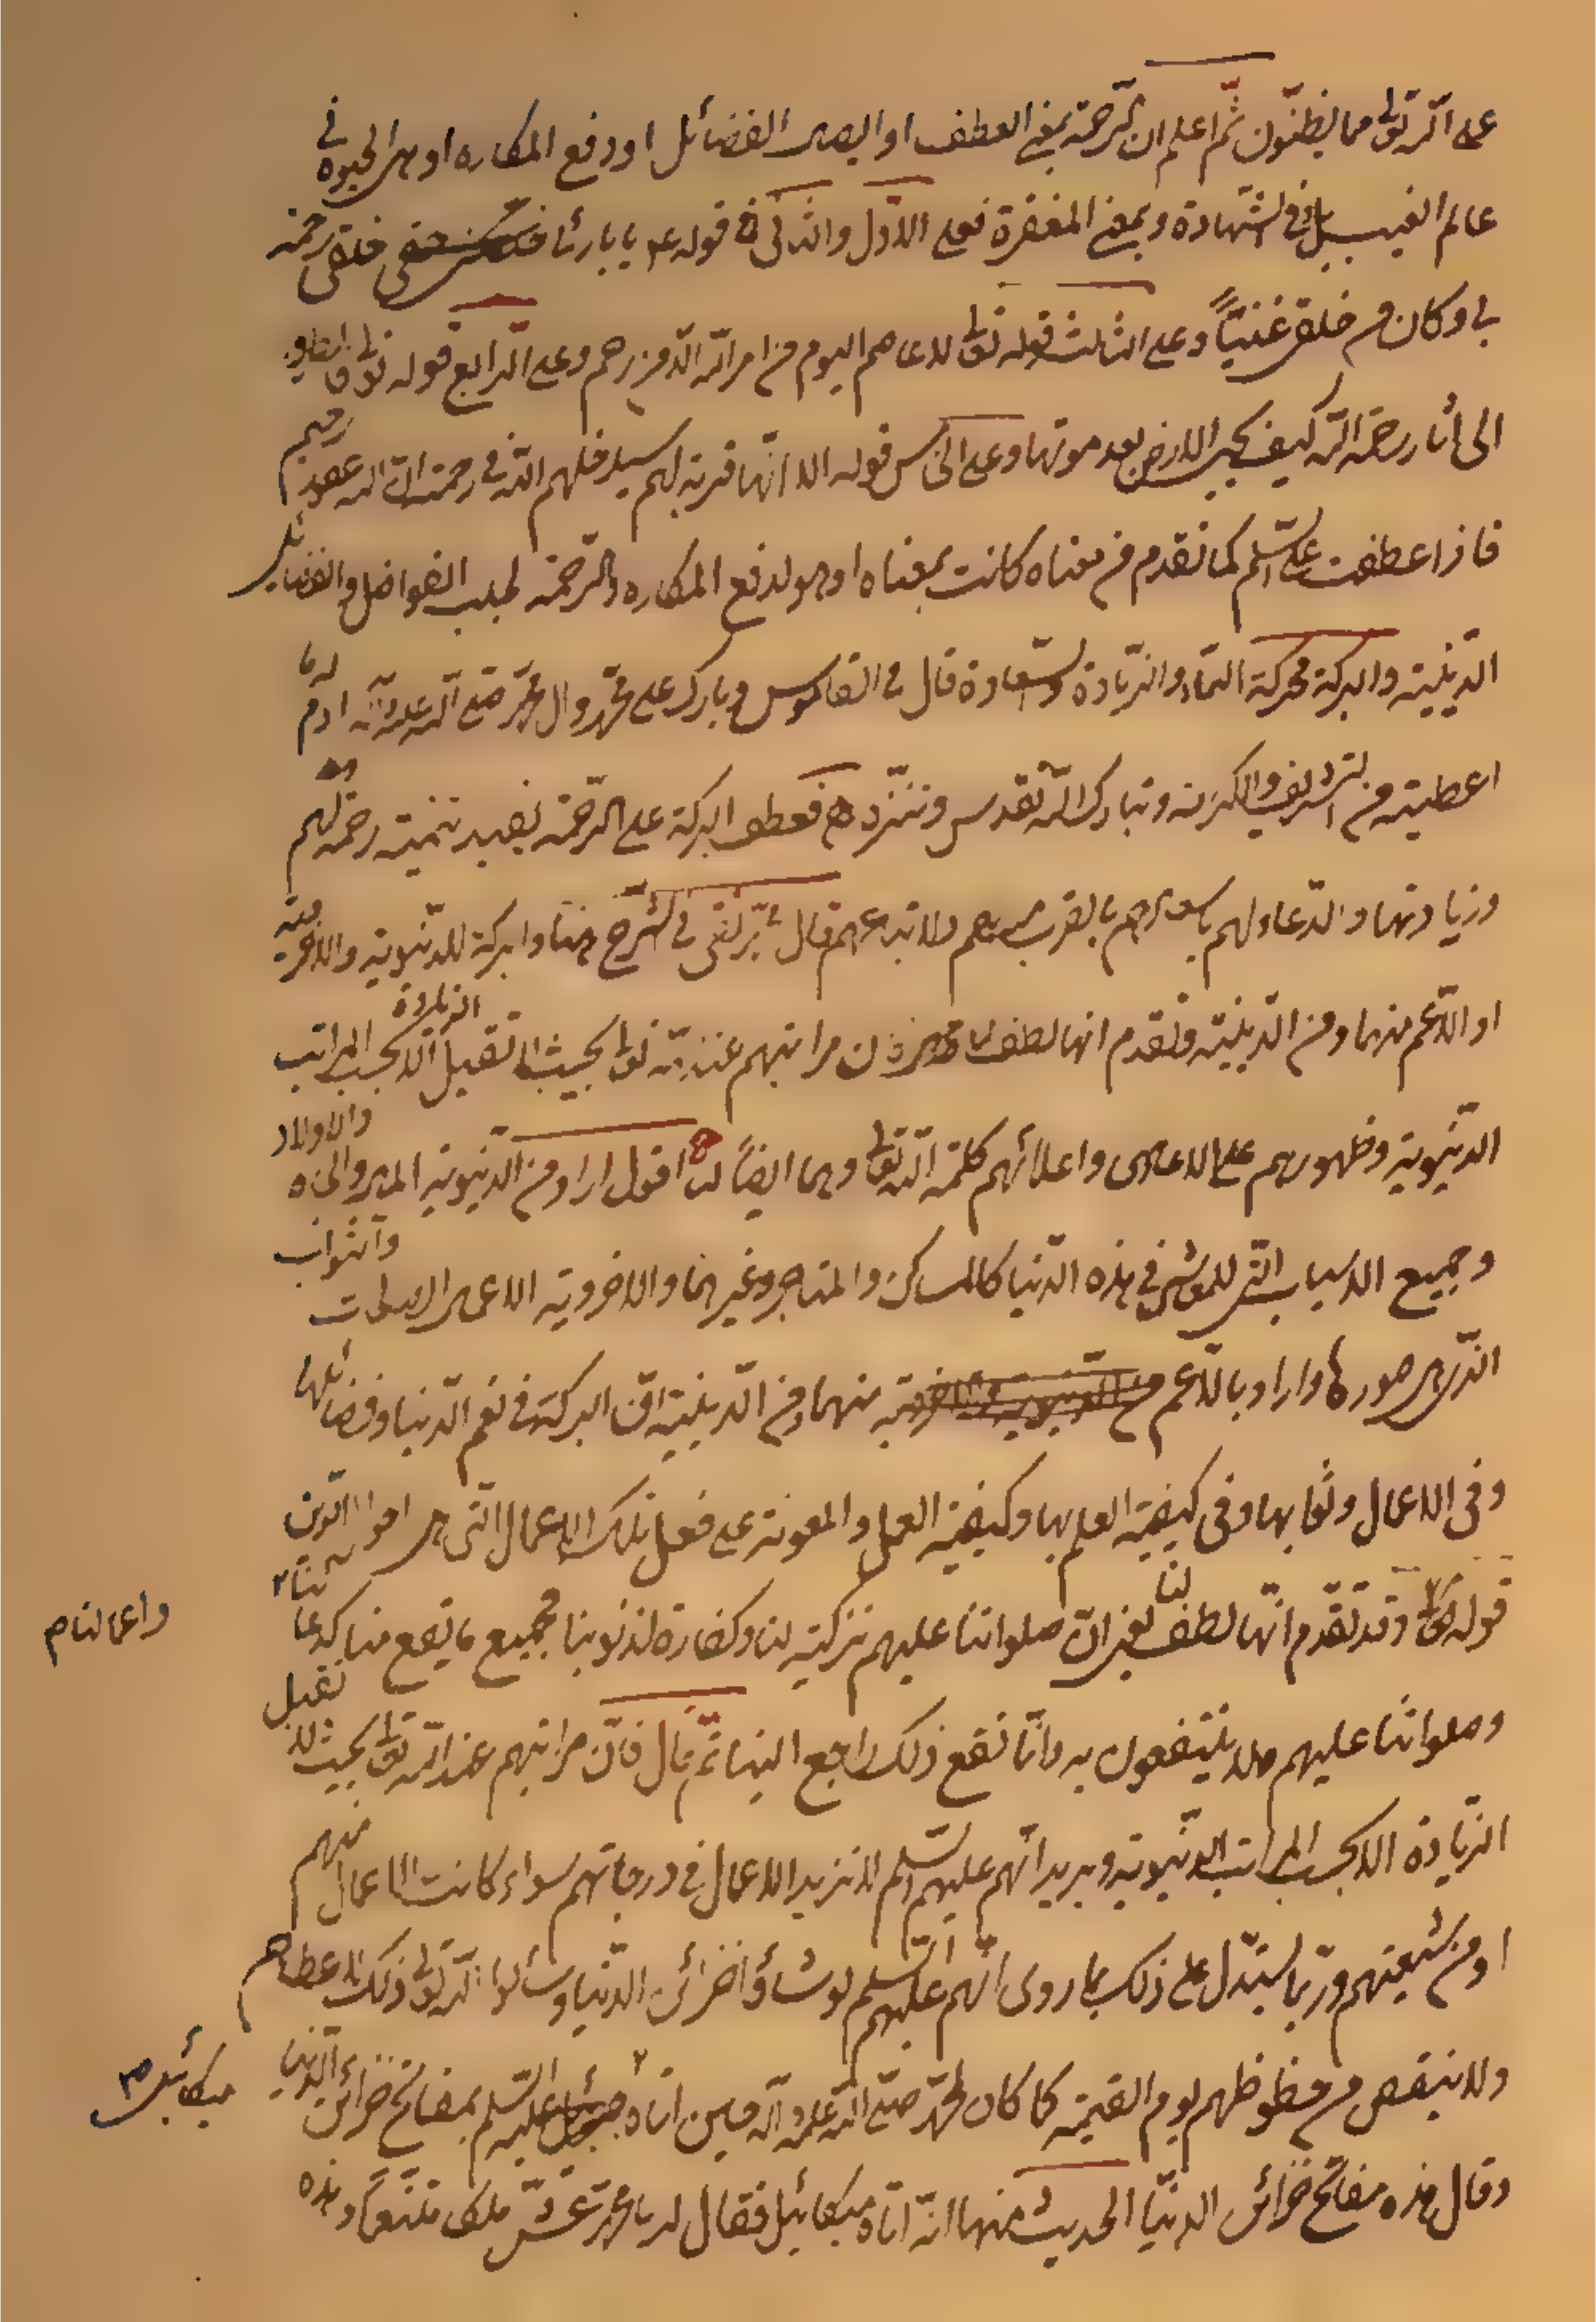 على الله تعالى مما يظنون ثم اعلم ان الرحمة بمعنى العطف او ايصال الفضائل او دفع المكاره او هى الحيوة فى
عالم الغيب بل فى الشهادة وبمعنى المغفرة فعلى الاول والثانى فى قوله ع يا بارئ خلقى رحمة
بى وكان من خلقى غنياً وعلى الثالث قوله تعالى لا عاصم اليوم من امر الله الا من رحم وعلى الرابع قوله تعالى فانظر
الى آثار رحمة الله كيف يحيى الارض بعد موتها وعلى الخامس قوله الا انها قربة لهم سيدخلهم الله فى رحمته ان الله غفور رحيم
فاذا عطفت على السلام كما تقدم من معناه كانت بمعناه او هو لدفع المكاره والرحمة لجلب الفواضل والفضائل
الدينية والبركة محركة النماء والزيادة والسعادة قال فى القاموس وبارك على محمد وال محمد صلى الله عليه وآله ادم له ما
اعطيته من التشريف والكرامة وتبارك الله تقدس وتنزه فعطف البركة على الرحمة يفيد تنمية رحمة الله لهم
وزيادتها والدعاء لهم بالقرب ولاتباعهم قال فى الشرح هنا والبركة الدنيوية والاخروية
او الاعم منهما ومن الدينية وتقدم انها لطف لنا فان مراتبهم عند الله تعالى بحيث لا تقبل الزيادة الا بحسب المراتب
الدنيوية وظهورهم على الاعادى واعلائهم كلمة الله تعالى وهما ايضاً لنا اقول اراد من الدنيوية المال والجاه والاولاد
وجميع الاسباب التى للمعاش فى هذه الدنيا كالمساكن والمتاجر وغيرهما والاخروية الاعمال الصالحات والثواب
الذى هى صورها واراد بالاعم منهما ومن الدينية ان البركة فى نعم الدنيا وفضائلها
وفى الاعمال وثوابها وفى كيفية العلم بها وكيفية العمل والمعونة على فعل تلك الاعمال التى هى احوال الدين
قوله وقد تقدم انها لطف لنا يعنى ان صلواتنا عليهم تزكية لنا وكفارة لذنوبنا فجميع ما يقع منا كدعائنا
واعمالنا
وصلواتنا عليهم فلا ينتفعون به وانما نفع ذلك راجع الينا ثم قال فان مراتبهم عند الله تعالى بحيث لا تقبل
الزيادة الا بحسب المراتب الدنيوية ويريد انهم عليهم السلام لا تزيد الاعمال فى درجاتهم سواء كانت الاعمال منهم
او من شيعتهم وربما يستدل على ذلك بما روى انهم عليهم السلام لو شاؤا خزائن الدنيا وسألوا الله تعالى ذلك لاعطاهم
ولا ينقص من حظوظهم يوم القيمة كما كان لمحمد صلى الله عليه وآله حين اتاه جبرئيل عليه السلم بمفاتح خزائن الدنيا
ميكائيل
وقال هذه مفاتح خزائن الدنيا الحديث منها انه اتاه ميكائيل فقال له يا محمد عش ملكا متنعماً وهذه